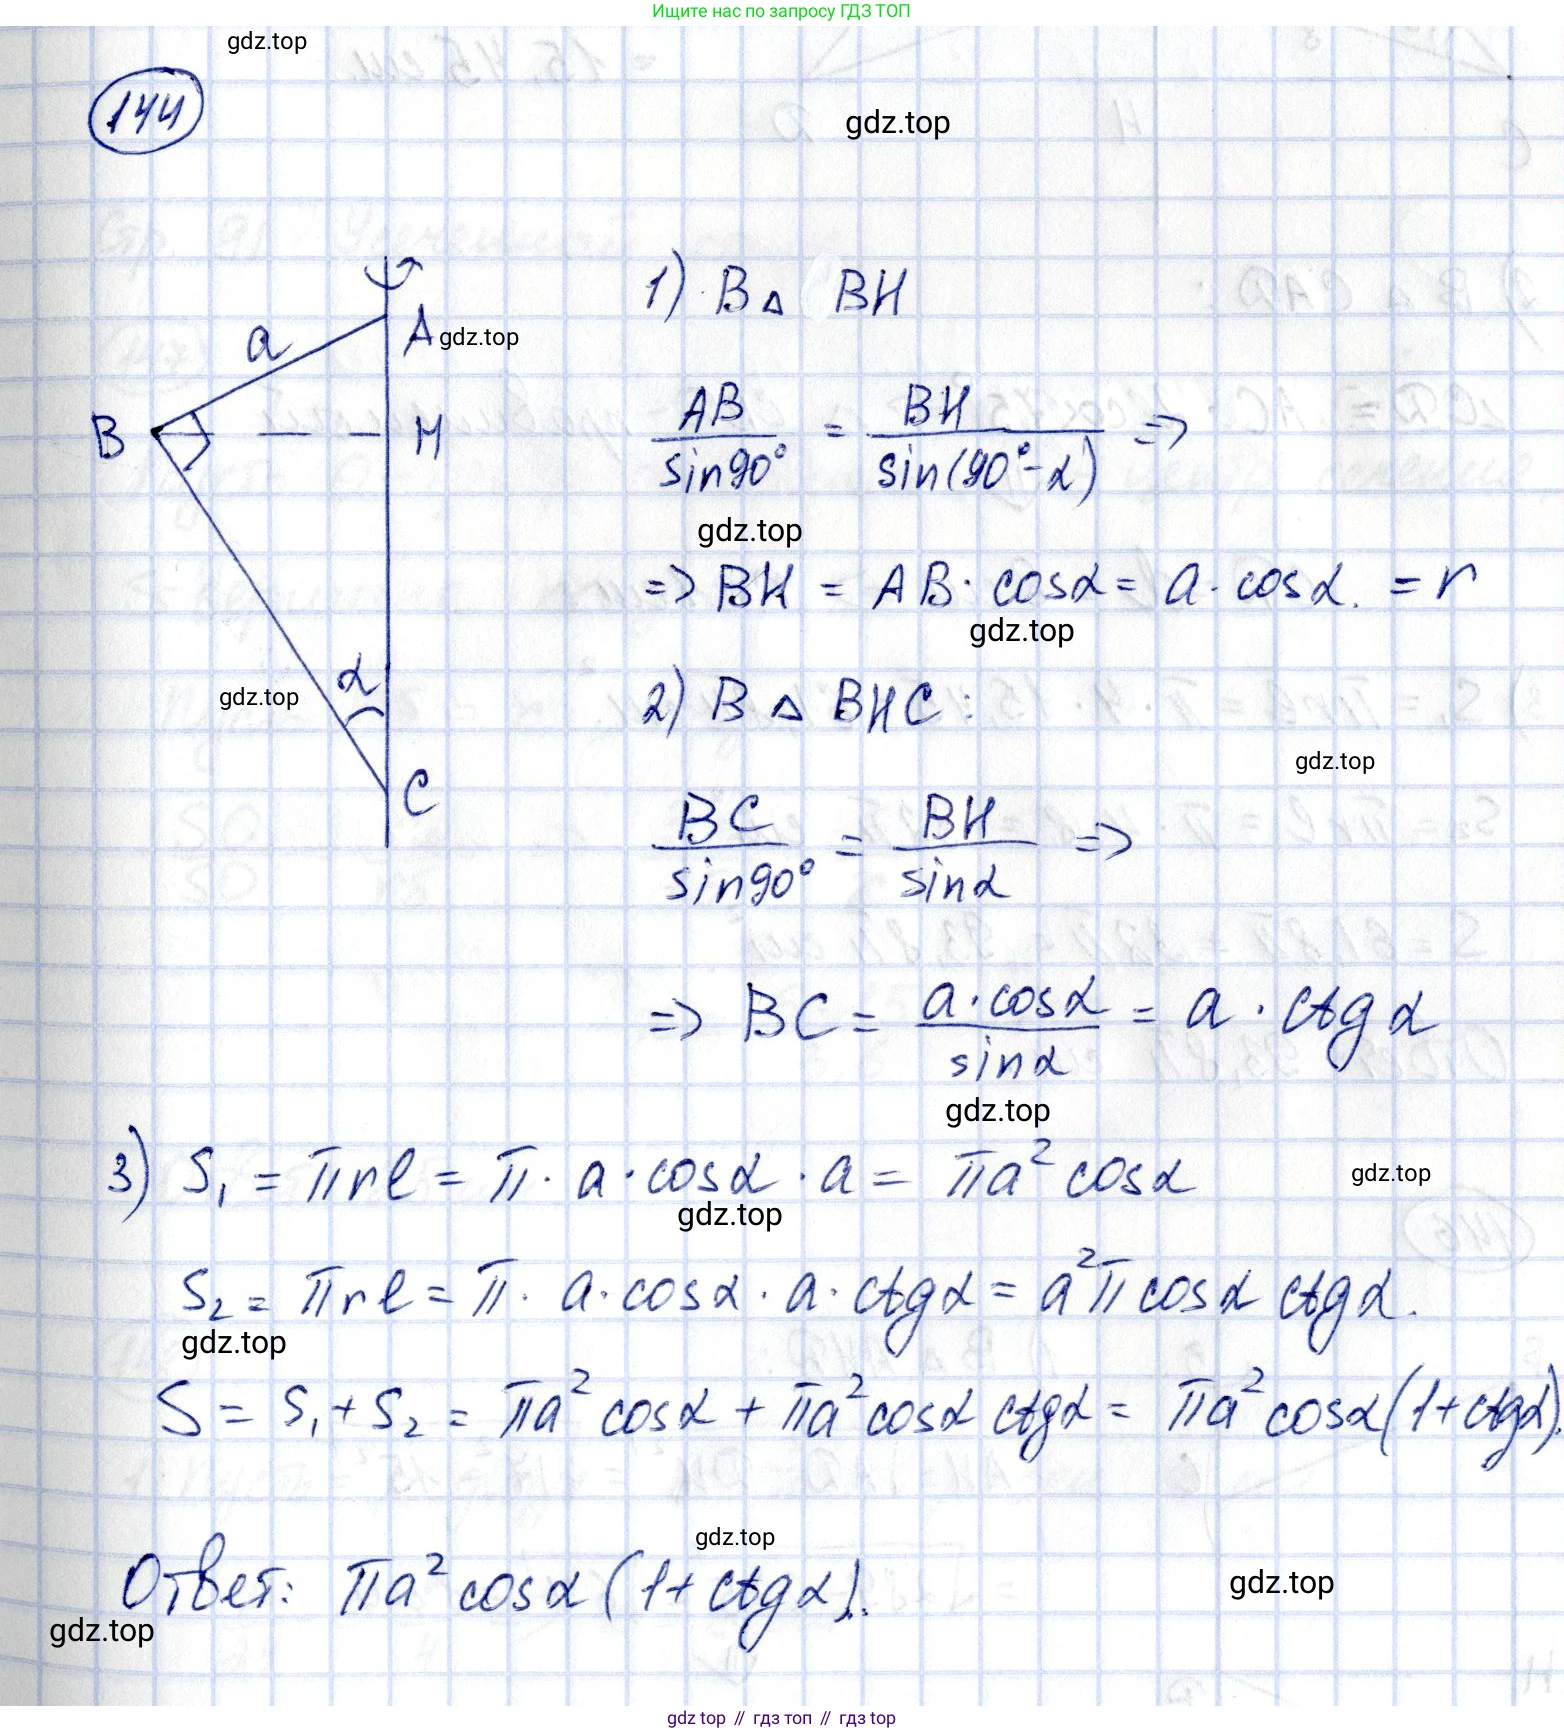 Ищите нас по запросу ГДЗ ТОП
gdz.top
144
gdz.top
1) В △ BH
a
A
gdz.top
B
H
AB / sin90° = BH / sin(90°-α) =>
gdz.top
=> BH = AB · cosα = a · cosα. = r
gdz.top
α
gdz.top
2) В △ BHC:
gdz.top
C
BC / sin90° = BH / sinα =>
=> BC = a·cosα / sinα = a · ctgα
gdz.top
3) S₁ = πrl = π · a · cosα · a = πa² cosα
gdz.top
gdz.top
S₂ = πrl = π · a · cosα · a · ctgα = a²π cosα ctgα.
gdz.top
S = S₁ + S₂ = πa² cosα + πa² cosα ctgα = πa² cosα(1+ctgα).
gdz.top
Ответ: πa² cosα (1+ctgα).
gdz.top
gdz.top
gdz top // гдз топ // гдз top